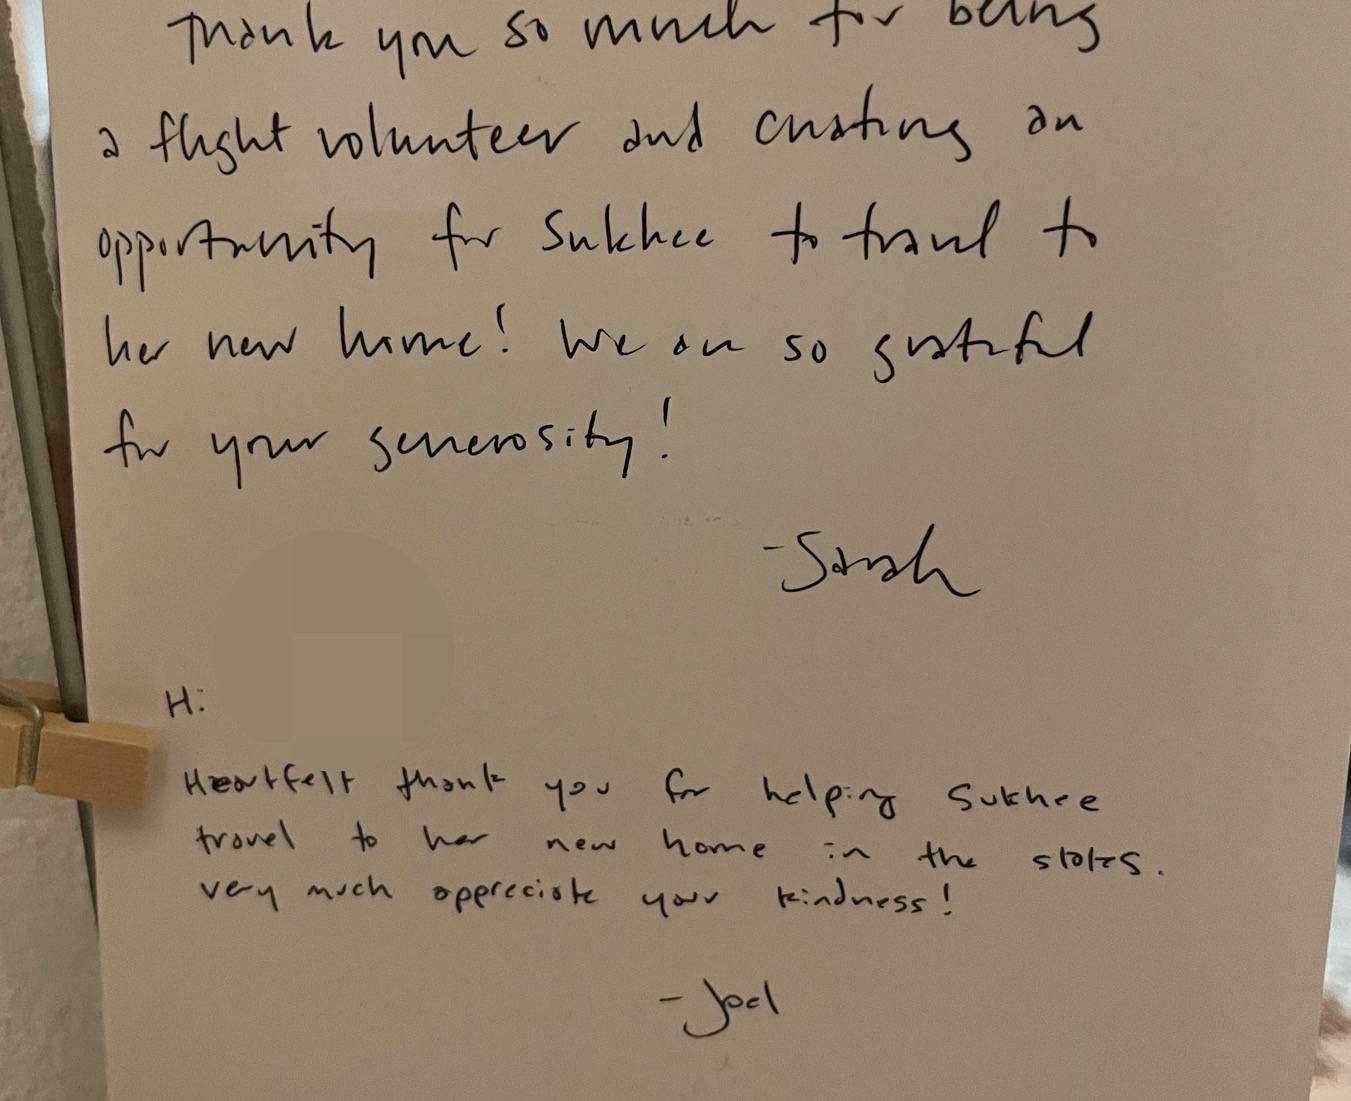 Thank you so much for being
a flight volunteer and creating an
opportunity for Sukhee to travel to
her new home! We are so grateful
for your generosity!
-Sarah
Hi
Heartfelt thank you for helping Sukhee
travel to her new home in the states.
very much appreciate your kindness!
-Joel